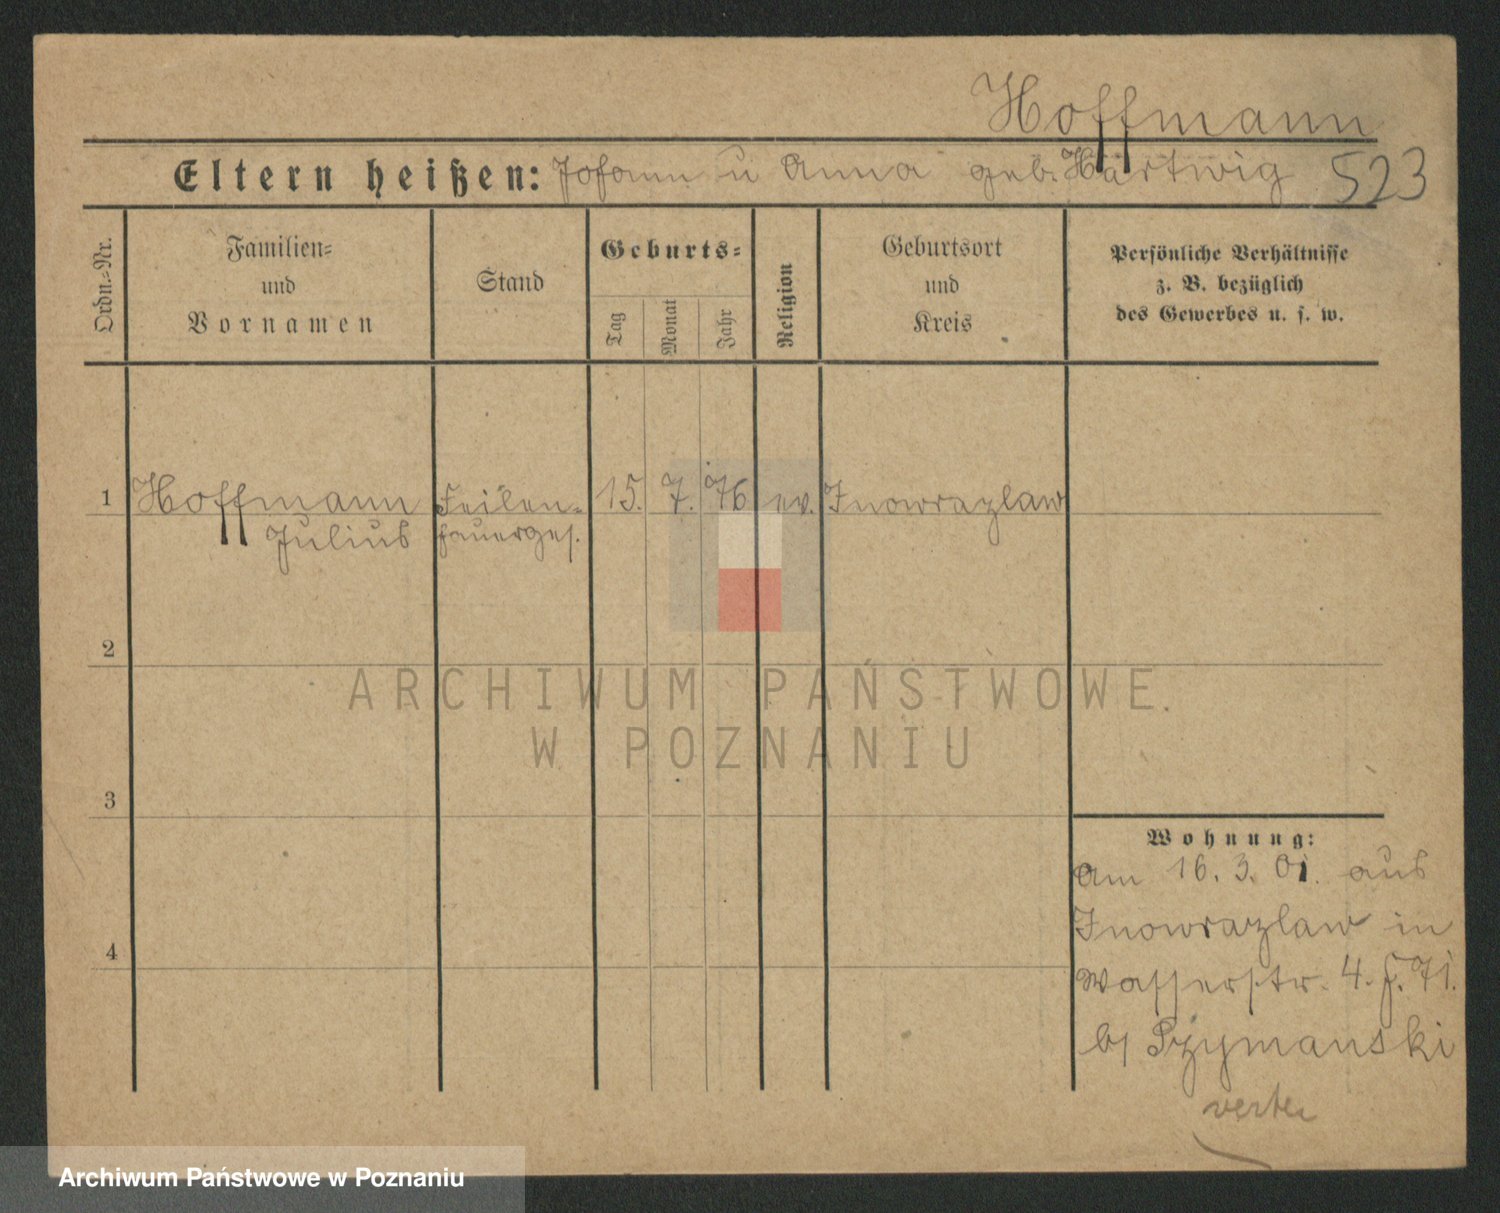 Hoffmann
Eltern heißen: Johann u Anna geb. Hartwig 523
Ordn.-Nr.
Familien-
und
Vornamen
Stand
Geburts-
Tag
Monat
Jahr
Religion
Geburtsort
und
Kreis
Persönliche Verhältnisse
z. B. bezüglich
des Gewerbes u. s. w.
1 Hoffmann Feilen- 15. 7. 76 ev. Inowrazlaw
Julius hauerges.
2
ARCHIWUM PAŃSTWOWE
W POZNANIU
3
Wohnung:
Am 16. 3. 01. aus
Inowrazlaw in
Wasserstr. 4. J. 71.
b/ Szymanski
4
verte
Archiwum Państwowe w Poznaniu